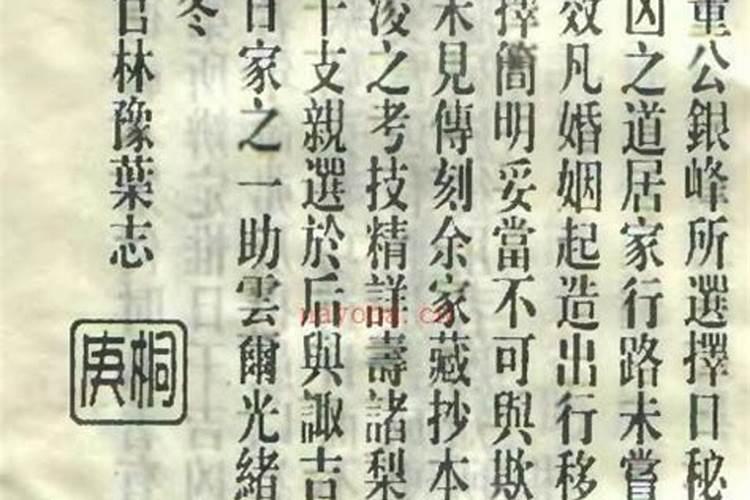 重公銀峰所選擇日秘
凶之道居家行路未嘗
效凡婚姻起造出行移
擇簡明妥當不可與欺
未見傳刻余家藏抄本
凌之考技精詳壽諸梨
干支親選於后與諏吉
日家之一助雲爾光緒
冬
官林豫葉志
桐庚
nayona.cn